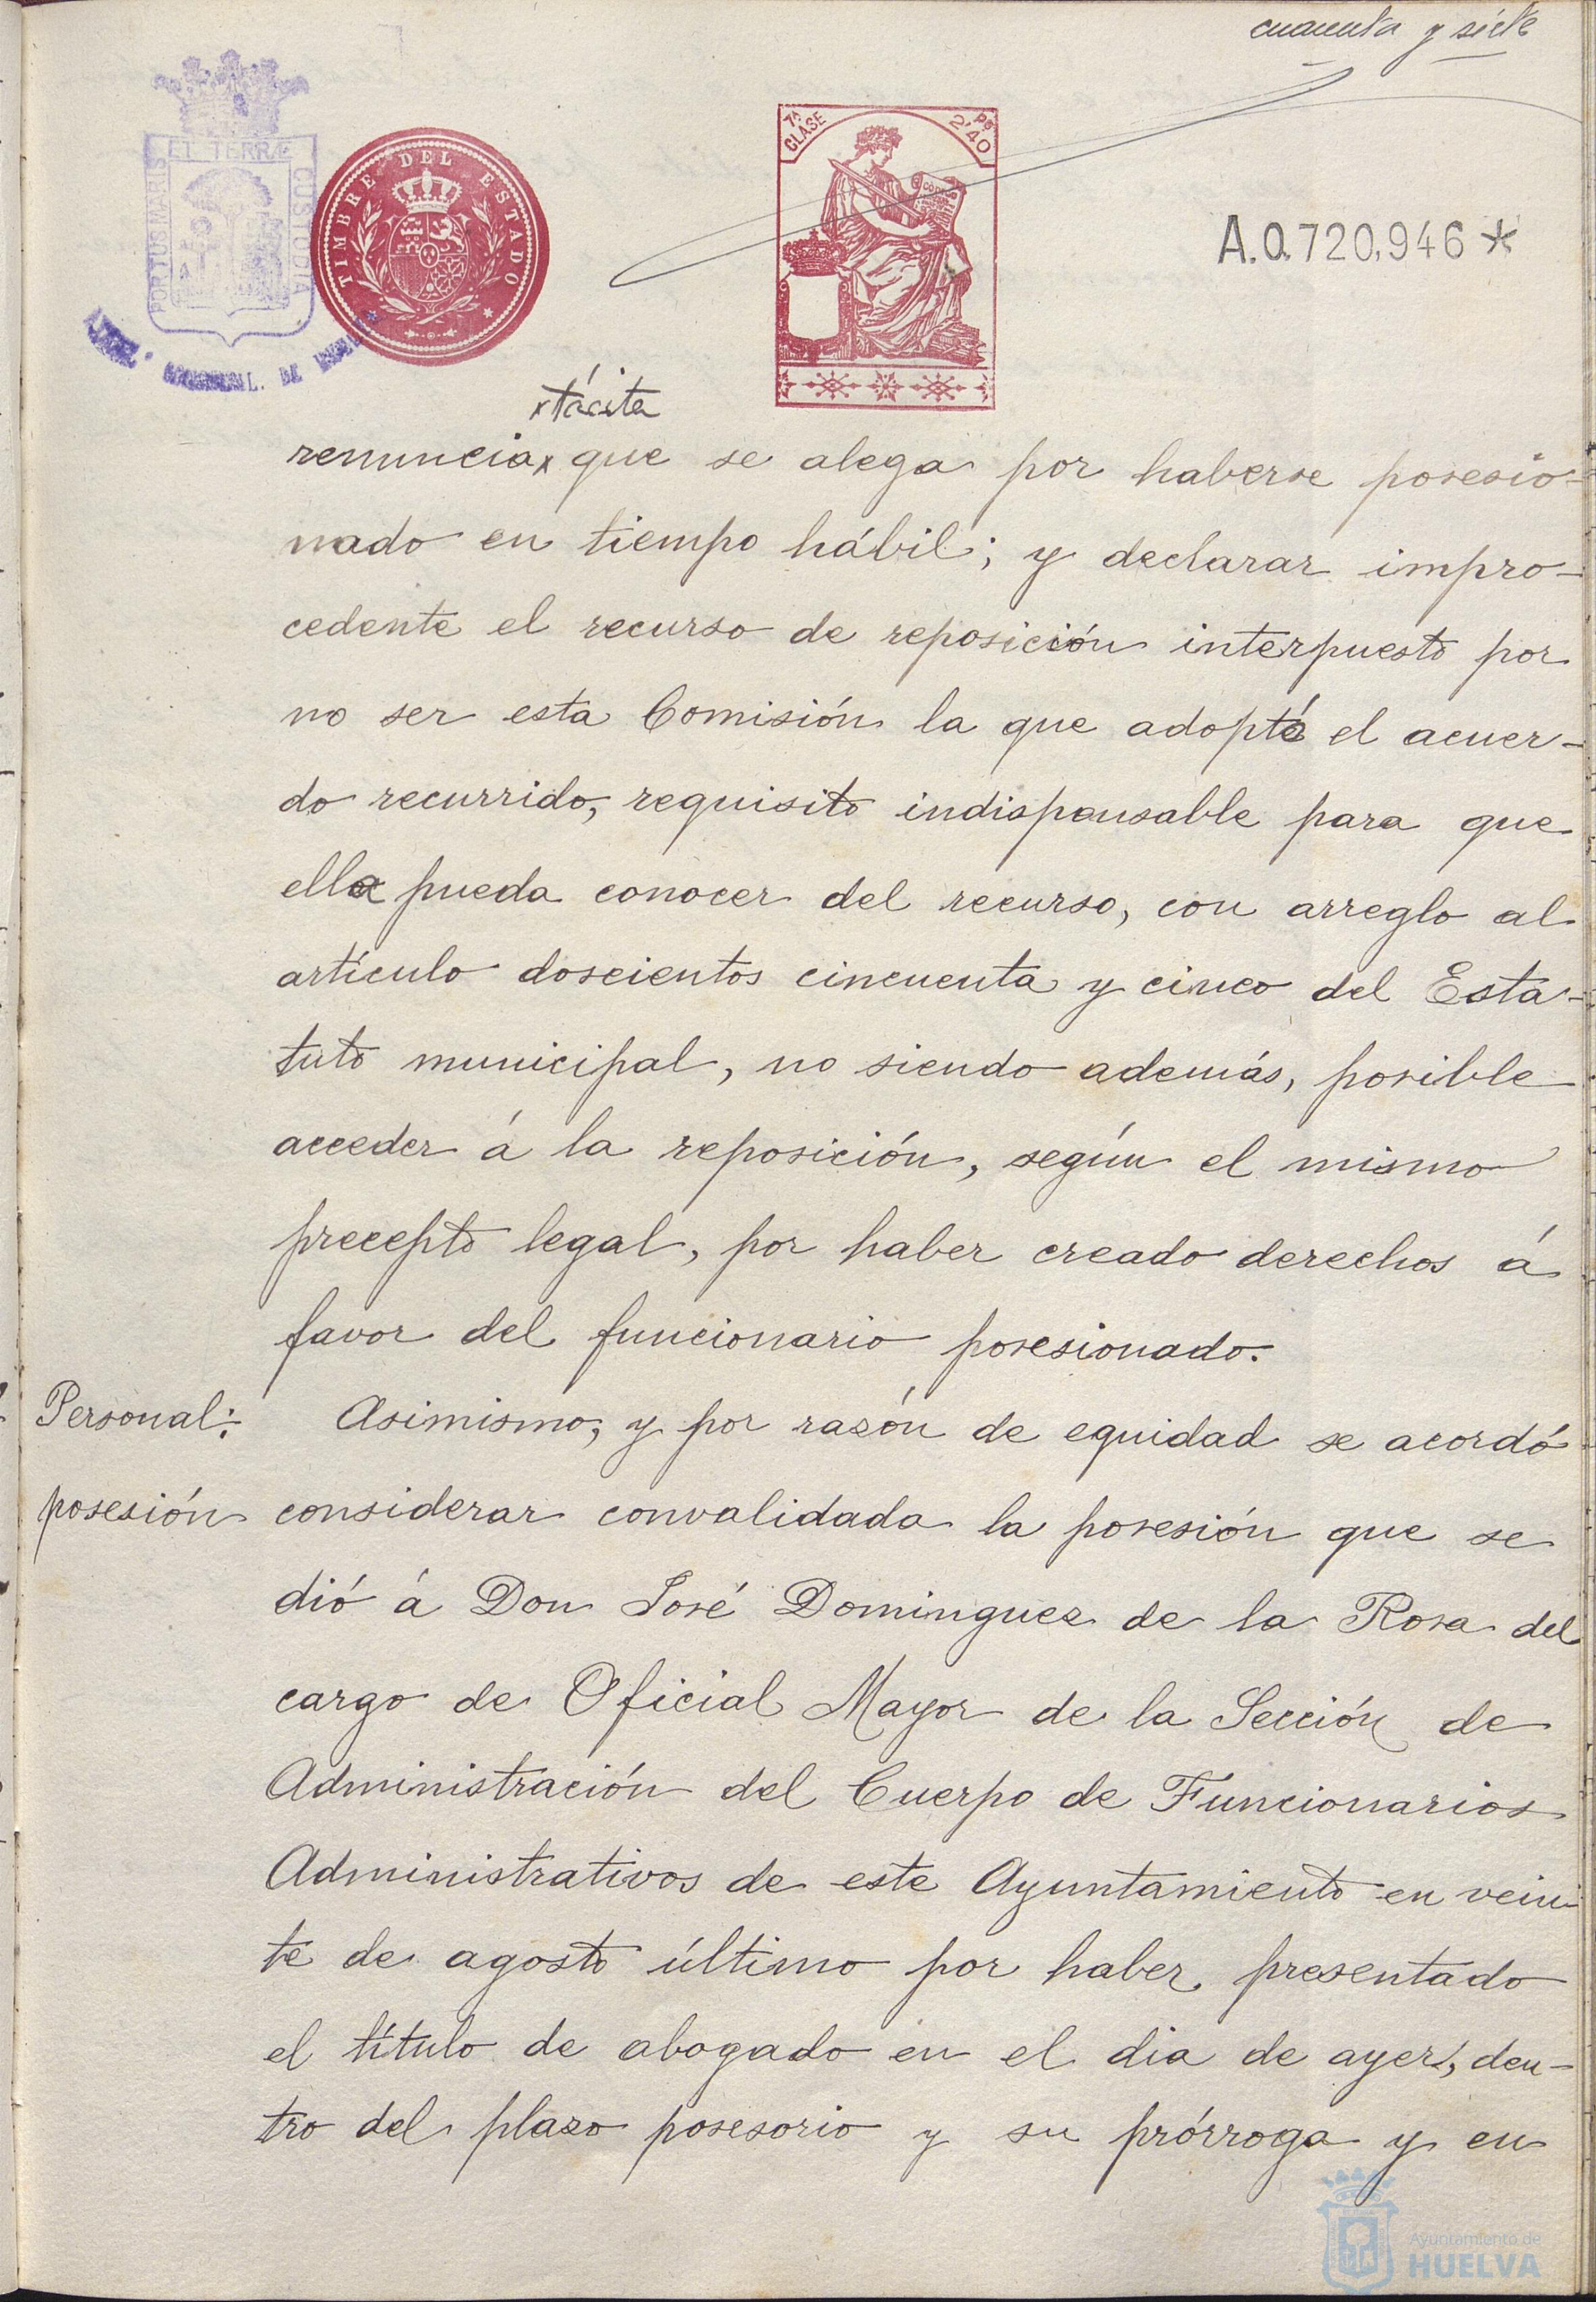 cuarenta y siete
ET TERRÆ
PORTUS MARIS
CUSTODIA
TIMBRE DEL ESTADO
7ª CLASE
Ps 2'40
A.0.720,946*
tácita
renuncia x que se alega por haberse posesio-
nado en tiempo hábil; y declarar impro-
cedente el recurso de reposición interpuesto por
no ser esta Comisión la que adoptó el acuer-
do recurrido, requisito indispensable para que
ella pueda conocer del recurso, con arreglo al
artículo doscientos cincuenta y cinco del Esta-
tuto municipal, no siendo además, posible
acceder á la reposición, según el mismo
precepto legal, por haber creado derechos á
favor del funcionario posesionado.
Personal:
posesión
Asimismo, y por razón de equidad se acordó
considerar convalidada la posesión que se
dió á Don José Dominguez de la Rosa del
cargo de Oficial Mayor de la Sección de
Administración del Cuerpo de Funcionarios
Administrativos de este Ayuntamiento en vein-
te de agosto último por haber presentado
el título de abogado en el dia de ayer, den-
tro del plazo posesorio y su prórroga y en
Ayuntamiento de
HUELVA